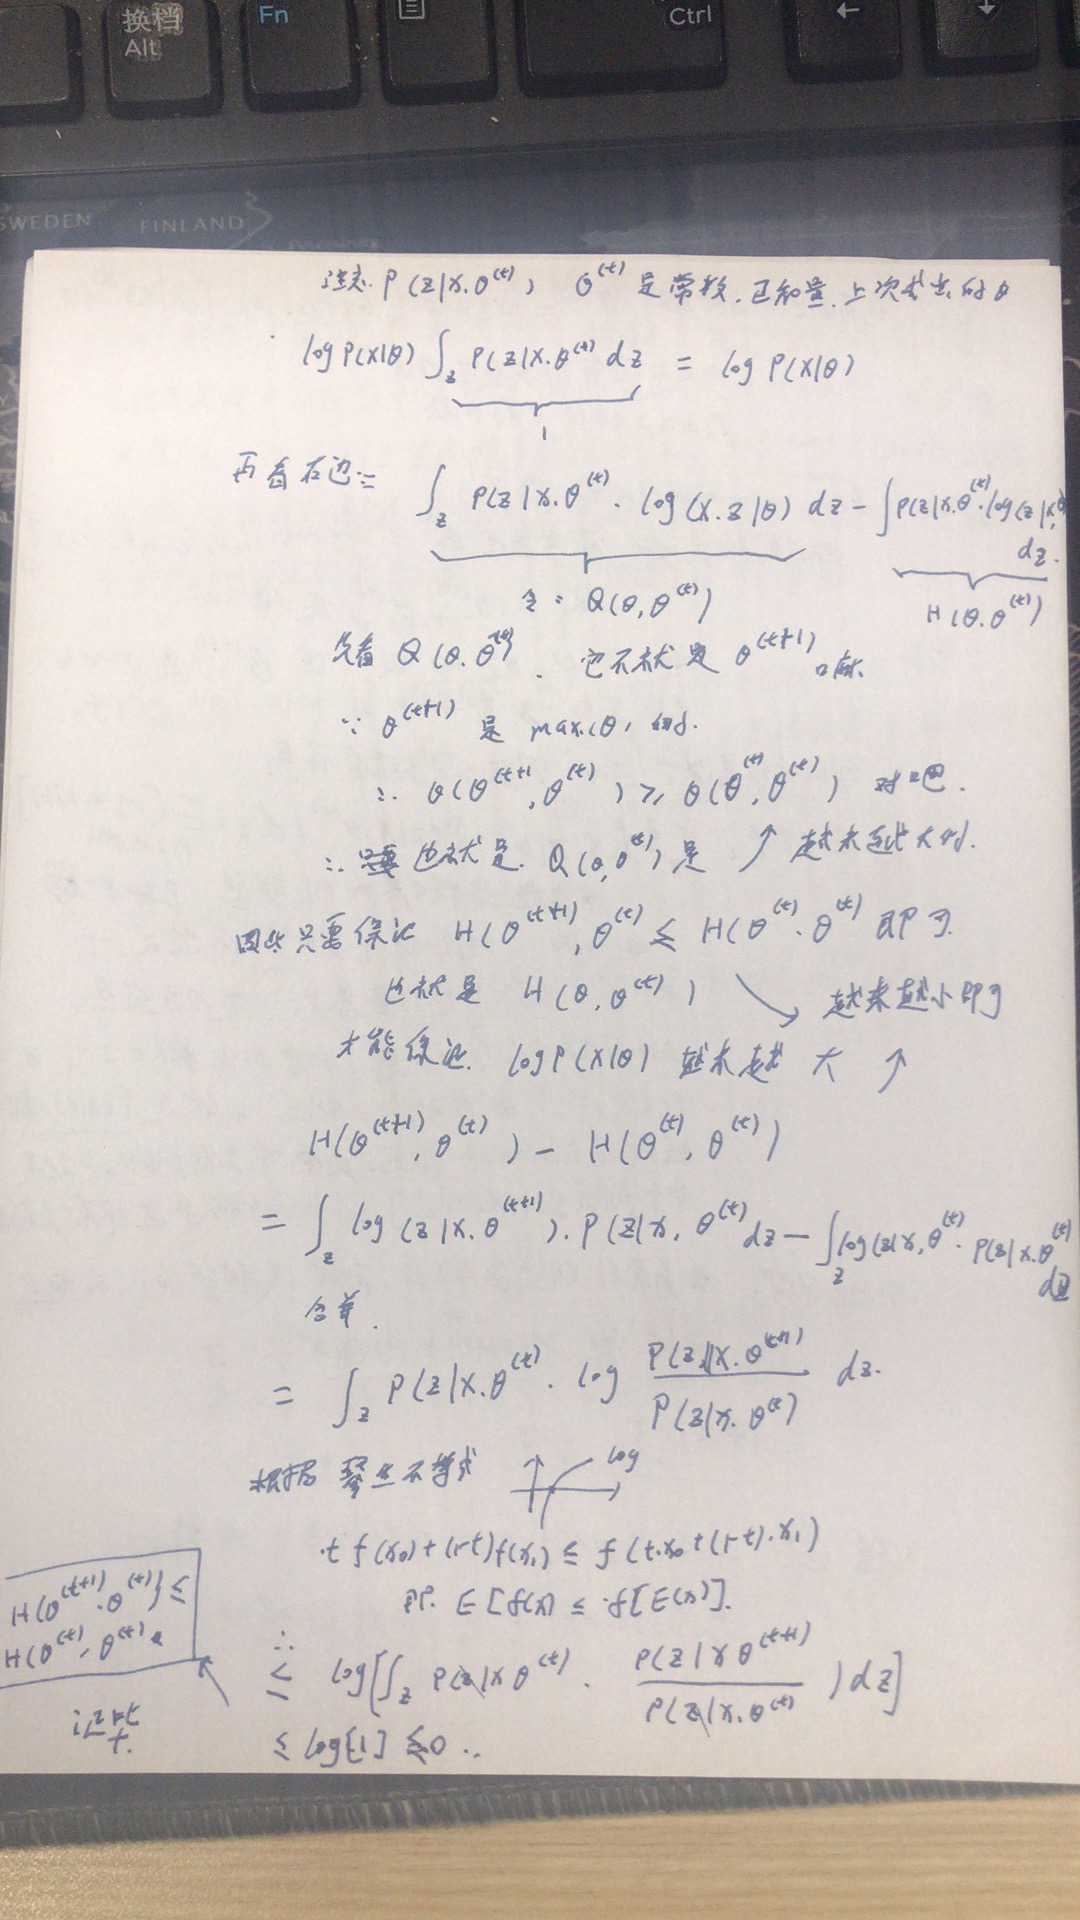 换档
Alt
Fn
Ctrl
SWEDEN
FINLAND
注意. P(z|x.θ^(t)) θ^(t) 是常数.已知量.上次求出的θ
log P(X|θ) ∫_z P(z|X.θ^(t) dz = log P(X|θ)
1
再看右边:=
∫_z P(z|x.θ^(t) · log(x.z|θ) dz - ∫P(z|x.θ^(t)·log(z|x,θ)
dz.
令: Q(θ,θ^(t))
H(θ.θ^(t))
先看 Q(θ.θ^(t)). 它不就是 θ^(t+1)
∵ θ^(t+1) 是 max.(θ)
∴ Q(θ^(t+1),θ^(t)) ≥ Q(θ^(t),θ^(t)) 对吧.
∴ 也就是. Q(θ,θ^(t))是 ↗ 越来越大的.
因此只要保证 H(θ^(t+1),θ^(t) ≤ H(θ^(t).θ^(t) 即可.
也就是 H(θ,θ^(t)) ↘ 越来越小即可
才能保证. log P(X|θ) 越来越大 ↗
H(θ^(t+1),θ^(t)) - H(θ^(t),θ^(t))
= ∫_z log(z|x.θ^(t+1)).P(z|x,θ^(t) dz - ∫_z log(z|x,θ^(t)·P(z|x.θ^(t)
dz
合并.
= ∫_z P(z|x.θ^(t)·log P(z|x.θ^(t+1)) / P(z|x.θ^(t)) dz.
根据 琴生不等式 log
t f(x₀)+(1-t)f(x₁) ≤ f(t.x₀+(1-t).x₁)
即. E[f(x) ≤ f[E(x)].
∴
≤ log[∫_z P(z|xθ^(t)· P(z|xθ^(t+1)) / P(z|x.θ^(t)) )dz]
≤ log[1] ≤0
H(θ^(t+1).θ^(t)) ≤
H(θ^(t).θ^(t)
证毕.